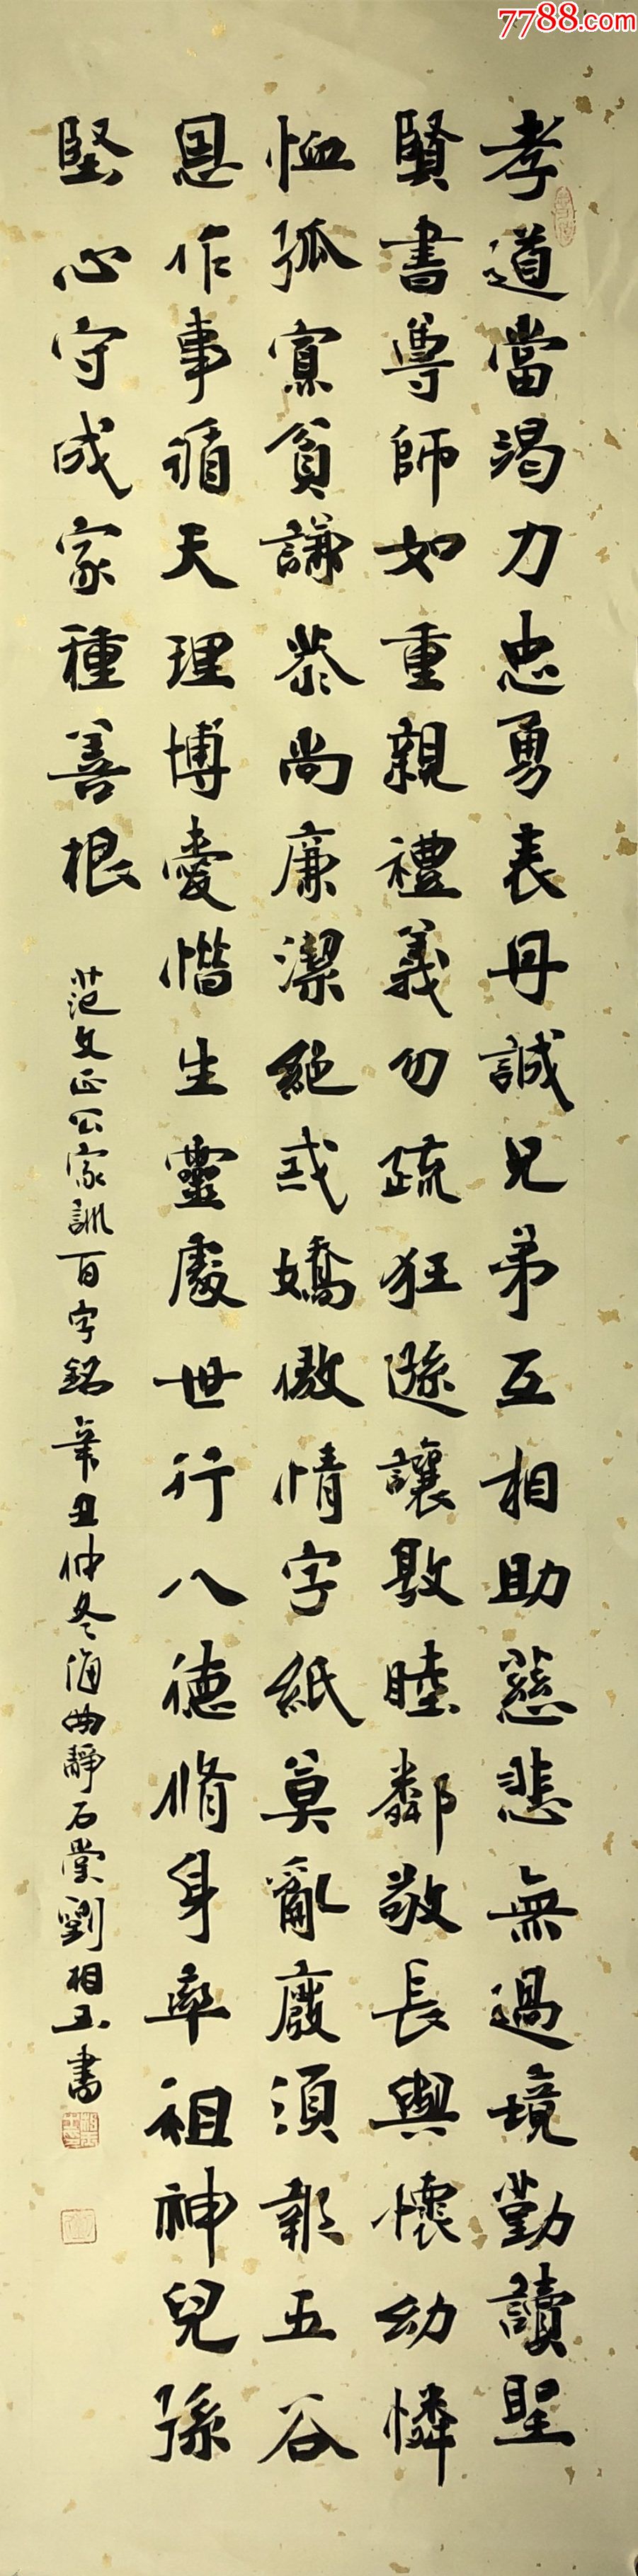 7788.com
孝道當渴力忠勇表丹誠兄弟互相助慈悲無過境勤讀聖
賢書尊師如重親禮義勿疏狂遜讓敦睦鄰敬長與懷幼憐
恤孤寡貧謙恭尚廉潔絕戒嬌傲情字紙莫亂廢須報五谷
恩作事循天理博愛惜生靈處世行八德修身率祖神兒孫
堅心守成家種善根
范文正公家訓百字銘 辛丑仲冬海曲靜石堂劉相玉書